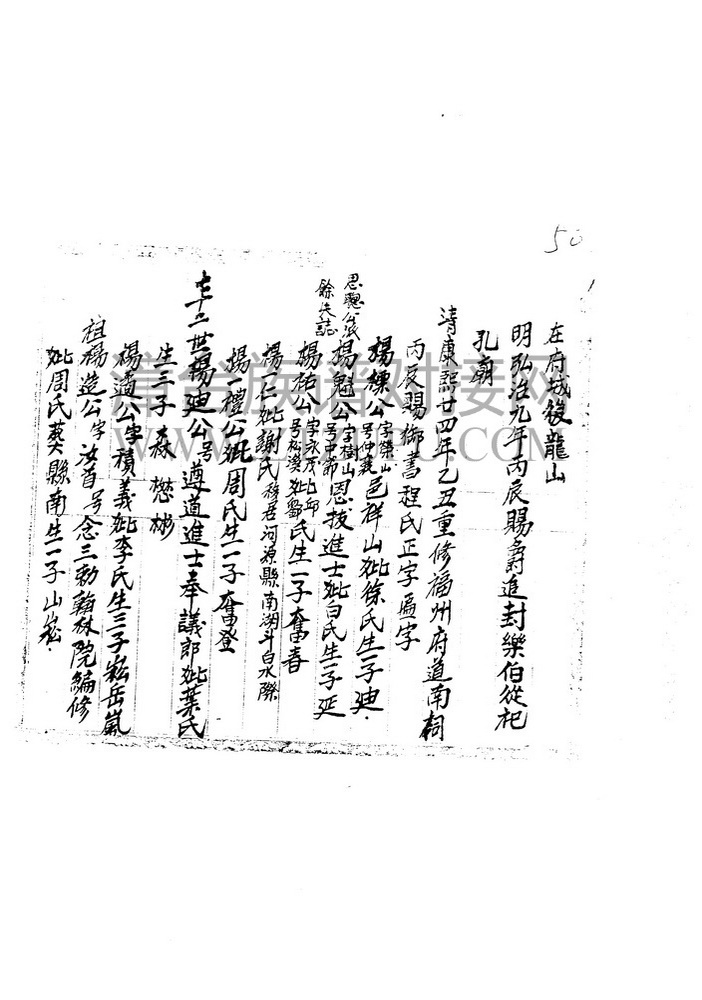 50
在府城後龍山
明弘治九年丙辰賜爵追封樂伯從祀
孔廟
清康熙廿四年乙丑重修福州府道南祠
丙辰賜御書程氏正字匾字
楊標公字傑山邑祥山妣徐氏生一子廸
思聰公派
餘失誌
楊魁公字樹山号中節恩拔進士妣白氏生一子延
楊祐公字永茂号松溪妣鄒氏生一子奮春
楊一仁妣謝氏移居河源縣南湖斗白水際
楊一禮公妣周氏生一子奮登
十二世楊廸公号遵道進士奉議郎妣葉氏
生三子森懋彬
楊適公字積義妣李氏生三子崧岳嵐
祖楊造公字汝首号念三勅翰林院編修
妣周氏葬縣南生一子山崧